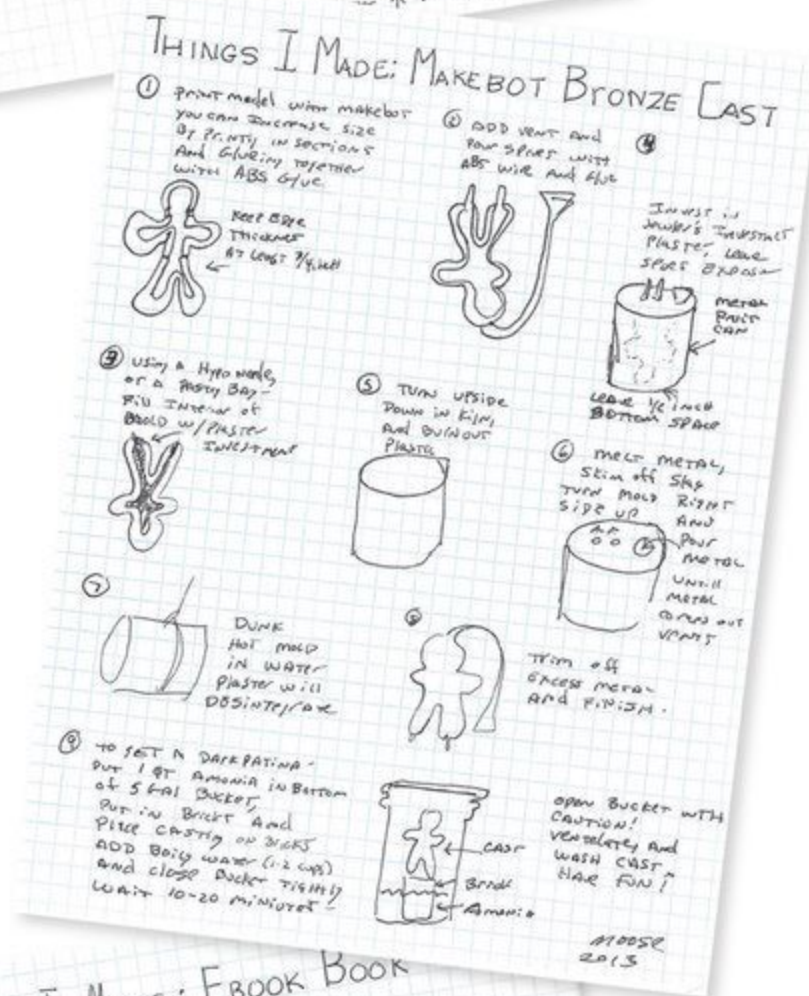 THINGS I MADE: MAKEBOT BRONZE CAST
①
PRINT model with makebot
you can Increase size
By Printy in sections
And Glueing together
with ABS Glue.
KEEP EDGE
THICKNES
AT LEAST
②
ADD VENT AND
POUR SPURS WITH
ABS WIRE AND Glue
④
INVEST in
PLASTER, LEAVE
SPURS
METAL
FRUIT
CAN
LEAVE 1/2 INCH
BOTTOM SPACE
③
USING A HYPO
or a PASTRY BAG-
Fill Interior of
W/PLASTER
INVESTMENT
⑤
TURN UPSIDE
DOWN IN KILN,
AND BURNOUT
PLASTIC
⑥
MELT METAL,
SKIM off Slag
TURN MOLD RIGHT
SIDE UP AND
POUR
METAL
UNTILL
METAL
COMES OUT
VENTS
⑦
DUNK
HOT MOLD
IN WATER
PLASTER WILL
DISINTEGRATE
⑧
TRIM off
EXCESS METAL
AND FINISH.
⑨
TO GET A DARK PATINA-
PUT 1 QT AMONIA IN BOTTOM
of 5 GAL BUCKET,
PUT IN BRICKS AND
PLACE CASTING ON
ADD Boily WATER (1-2 cups)
AND CLOSE BUCKET TIGHTLY
WAIT 10-20
CAST
BRICK
AMONIA
OPEN BUCKET WITH
CAUTION!
AND
WASH CAST -
HAVE FUN!
MOOSE
2013
EBOOK BOOK